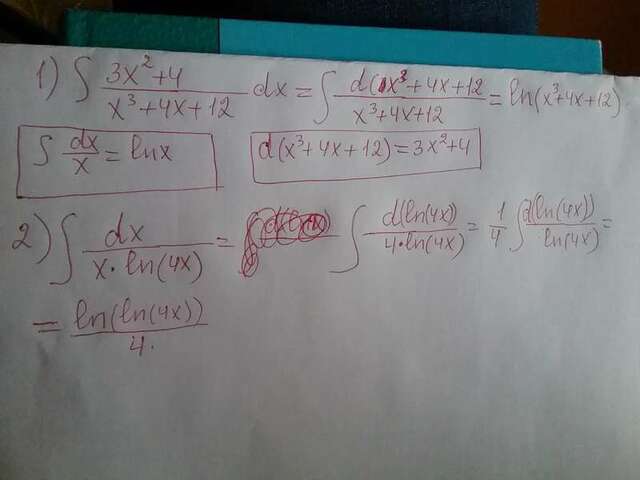 1) ∫ (3x²+4)/(x³+4x+12) dx = ∫ d(x³+4x+12/(x³+4x+12) = ln(x³+4x+12)
∫ dx/x = lnx d(x³+4x+12) = 3x²+4
2) ∫ dx/(x·ln(4x)) = ∫ d(ln(4x))/(4·ln(4x)) = 1/4 ∫ d(ln(4x))/ln(4x) =
= ln(ln(4x))/4.